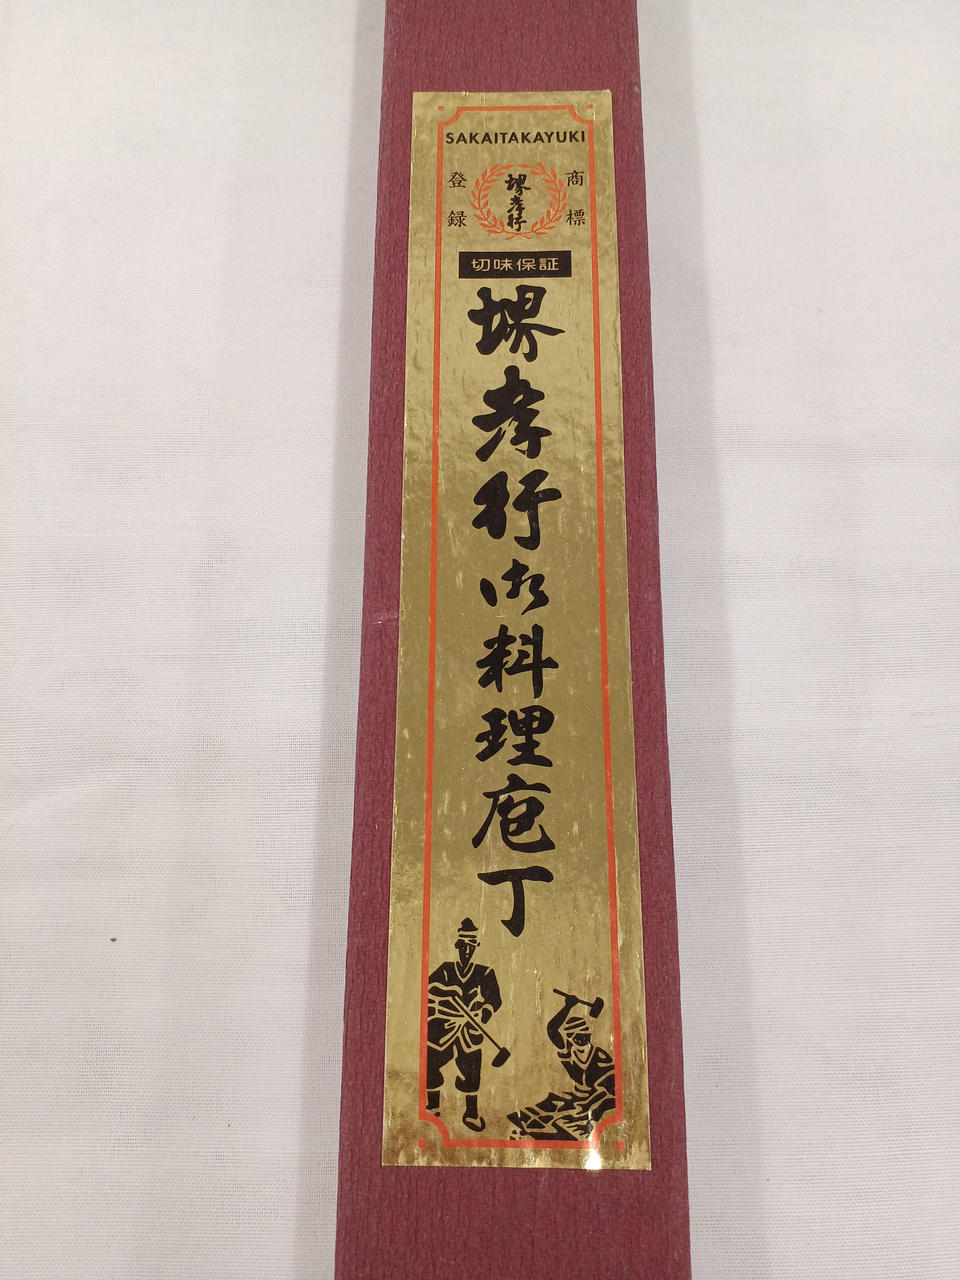 SAKAITAKAYUKI
登録
堺孝行
商標
切味保証
堺孝行御料理庖丁